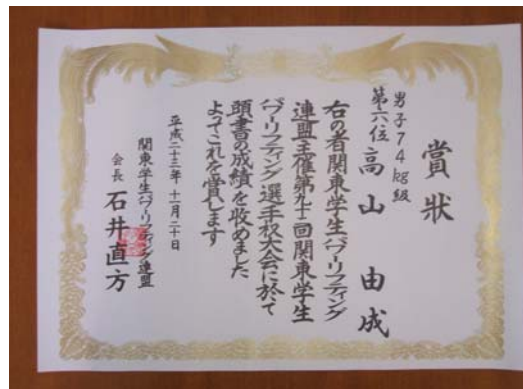 賞状
男子74kg級
第六位 高山 由成
右の者関東学生パワーリフティング
連盟主催第九十二回関東学生
パワーリフティング選手权大会に於て
頭書の成績を収めました
よってこれを賞します
平成二十三年十一月二十日
関東学生パワーリフティング連盟
会長 石井直方